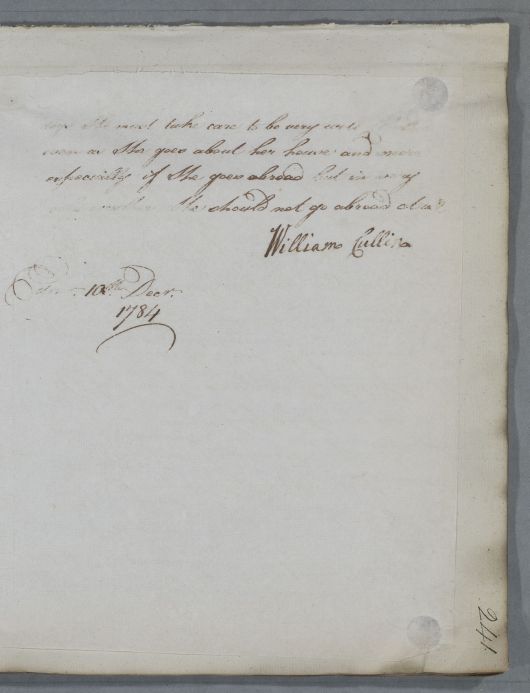 She must take care to be very
as She goes about her house and more
especially if She goes abroad but in very
She should not go abroad at all
William Cullen
10th Decr.
1784
241